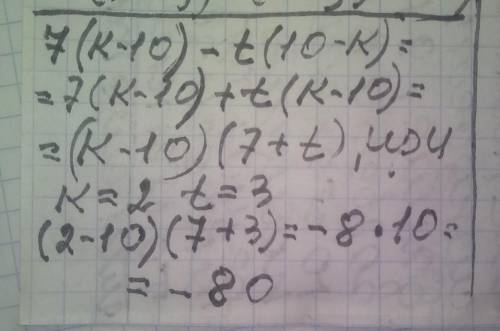 7(к-10)-t(10-к)=
=7(к-10)+t(к-10)=
=(к-10)(7+t),
к=2 t=3
(2-10)(7+3)=-8·10=
=-80